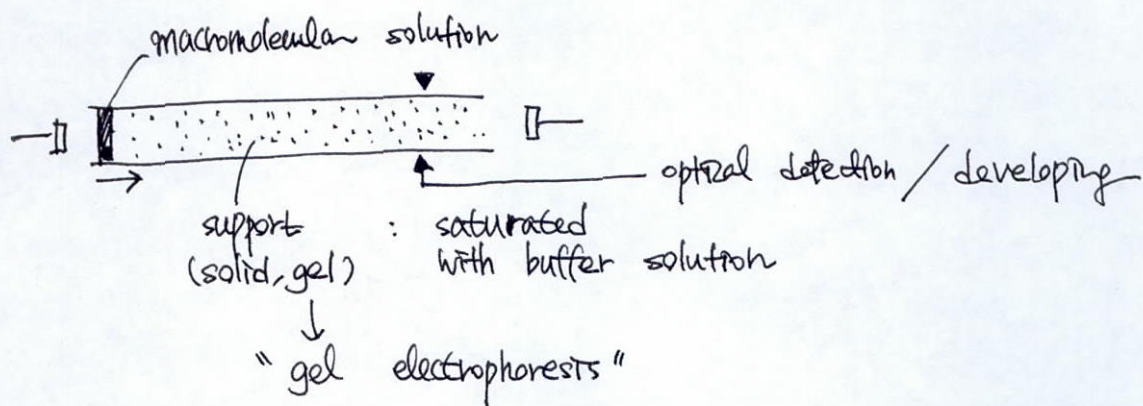 macromolecular solution
optical detection / developing
support : saturated
(solid, gel) with buffer solution
" gel electrophoresis "